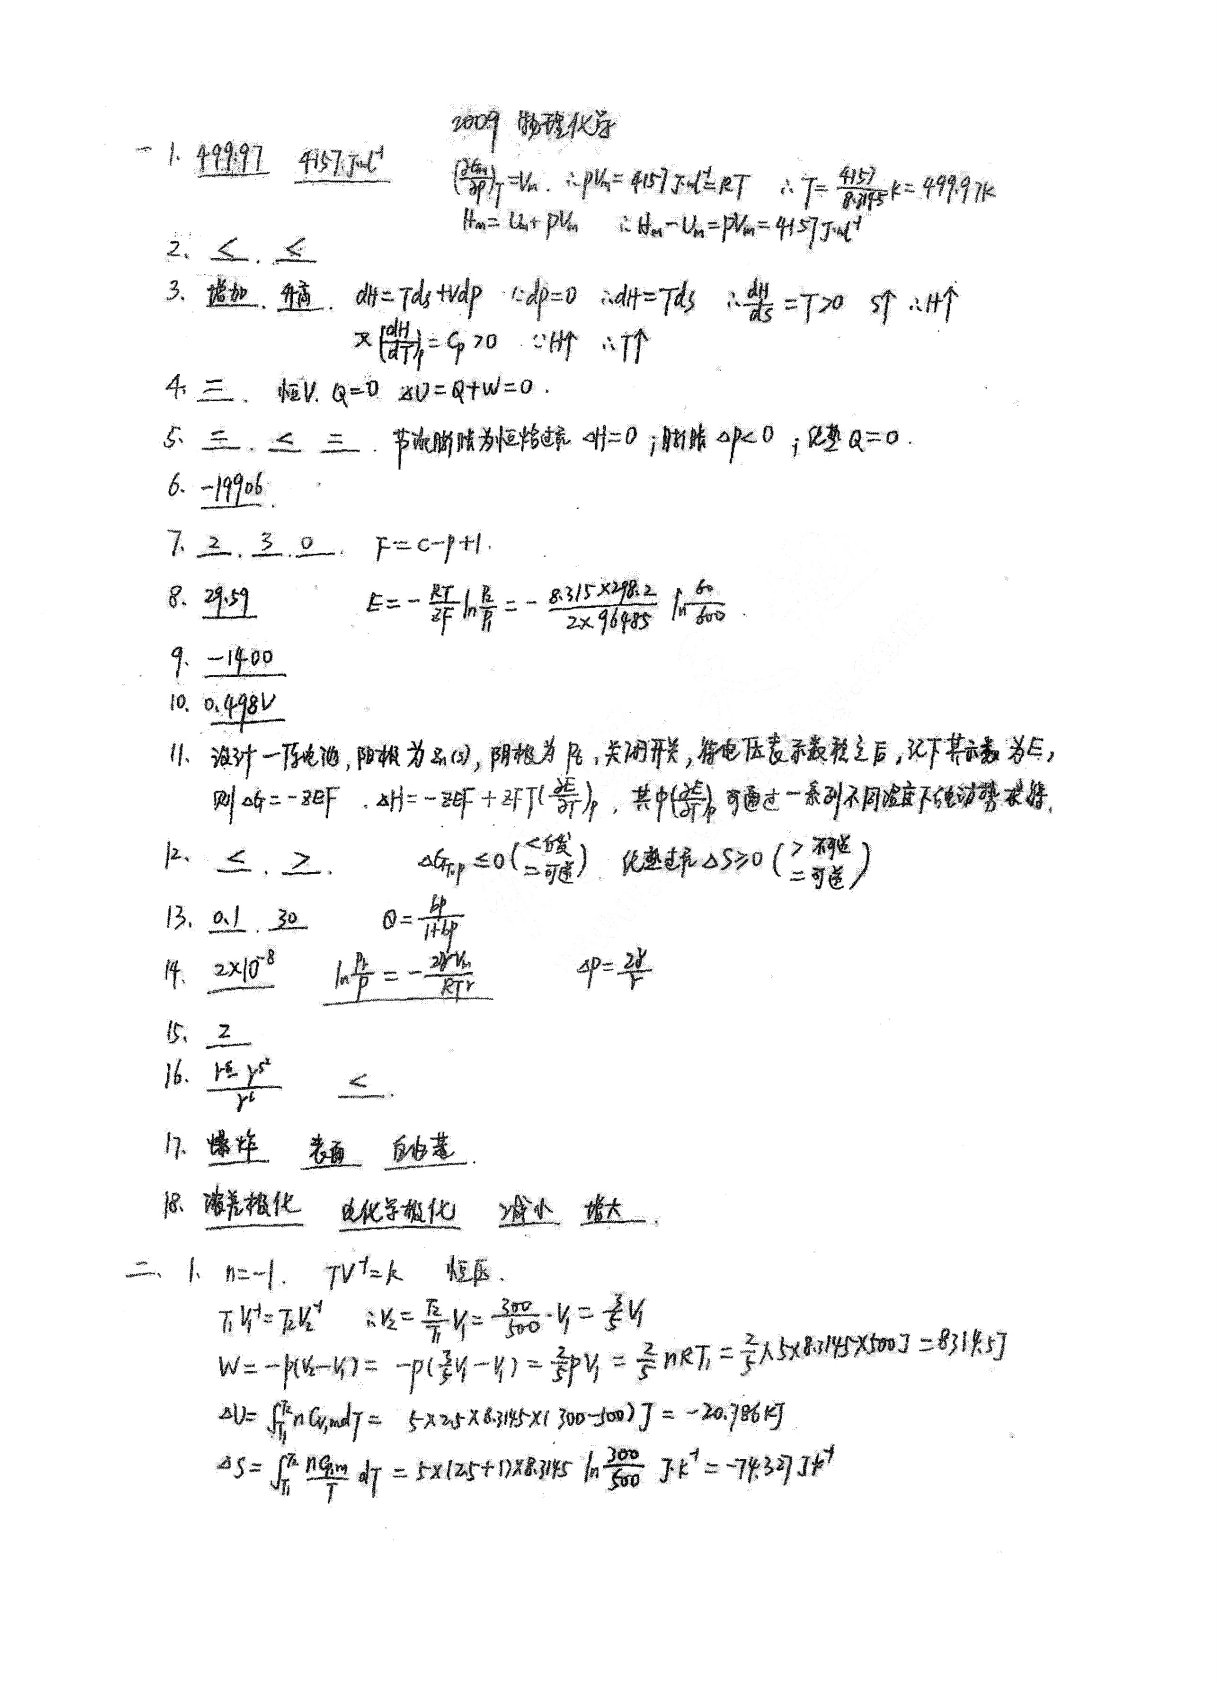 2009 物理化学
一 1. 499.97 4157 J·mol⁻¹ (∂Gm/∂p)T=Vm. ∴pVm=4157 J·mol⁻¹=RT ∴T=4157/8.3145 K=499.97K
Hm=Um+pVm ∴Hm-Um=pVm=4157 J·mol⁻¹
2. ≤. ≤
3. 增加. 升高. dH=Tds+Vdp ∵dp=0 ∴dH=Tds ∴dH/ds=T>0 S↑ ∴H↑
又(dH/dT)p=Cp>0 ∵H↑ ∴T↑
4. 三. 恒V. Q=0 ΔU=Q+W=0.
5. 三. < 三. 节流膨胀为恒焓过程 ΔH=0;膨胀 Δp<0;绝热 Q=0.
6. -19906.
7. 2. 3. 0. F=C-P+1.
8. 29.59 E=-RT/zF ln P2/P1=-8.315×298.2/2×96485 ln 60/600.
9. -1400
10. 0.498V
11. 设计一原电池,阳极为Zn(s),阴极为Pt,关闭开关,待电压表示数稳定后,记下其示数为E,
则ΔG=-zEF. ΔH=-zEF+zFT(∂E/∂T)p, 其中(∂E/∂T)p可通过一系列不同温度下的电动势求得.
12. ≤. >. ΔGT,p≤0(<自发 =可逆) 绝热过程ΔS≥0(>不可逆 =可逆)
13. 0.1. 30 θ=bp/1+bp
14. 2×10⁻⁸ ln Pr/P=-2γVm/RTr ΔP=2γ/r
15. 2
16. <.
17. 爆炸 表面 自由基.
18. 浓差极化 电化学极化 减小 增大.
二、1. n=-1. TV⁻¹=k 恒压.
T1V1⁻¹=T2V2⁻¹ ∴V2=T2/T1 V1=300/500·V1=3/5V1
W=-p(V2-V1)=-p(3/5V1-V1)=2/5pV1=2/5nRT1=2/5×5×8.3145×500J=8314.5J
ΔU=∫T1T2 nCv,mdT=5×2.5×8.3145×(300-500)J=-20.786KJ
ΔS=∫T1T2 nCp,m/T dT=5×(2.5+1)×8.3145 ln 300/500 J·K⁻¹=-74.327J·K⁻¹